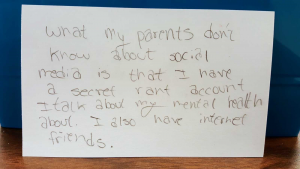 What my parents don't
know about social
media is that I have
a secret rant account
I talk about my mental health
about. I also have internet
friends.